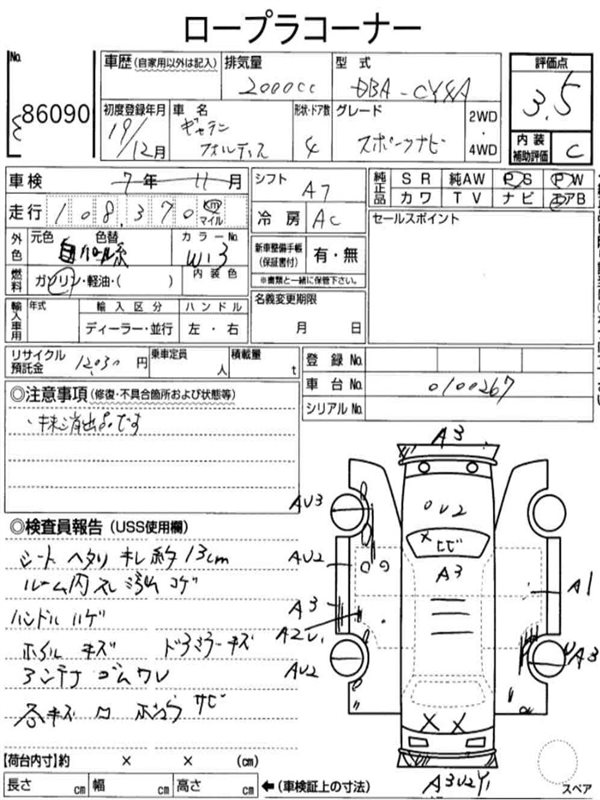 ロープラコーナー
No. 86090
車歴 (自家用以外は記入) 排気量 2000cc 型式 DBA-CY4A
評価点 3.5
初度登録年月 19/12月 車名 ギャラン フォルティス 形状・ドア数 4 グレード スポーツナビ 2WD・4WD
内装補助評価 C
車検 7年 11月 シフト A7
純正品 SR 純AW PS PW
カワ TV ナビ エアB
走行 108,370 km マイル 冷房 AC
セールスポイント
外色 元色 色替 カラーNo. W13
内装色
新車整備手帳 (保証書付) 有・無
※書類と一緒に保管下さい。
燃料 ガソリン・軽油・( )
名義変更期限 月 日
輸入車用 年式 輸入区分 ハンドル
ディーラー・並行 左・右
リサイクル預託金 12030円 乗車定員 人 積載量 t
登録No.
車台No. 0100267
シリアルNo.
◎注意事項 (修復・不具合箇所および状態等)
◎検査員報告 (USS使用欄)
シート ヘタリ キレ 約13cm
ルーム内 スレ 汚れ コゲ
ハンドル ハゲ
ホイル キズ ドアミラーキズ
アンテナ ゴムワレ
サビ
A3
AU3
U2
ヒビ
AU2
A3
A1
A3
A2U1
AU2
A3
A3U2Y1
【荷台内寸】約 × × (cm)
長さ cm 幅 cm 高さ cm ←(車検証上の寸法)
スペア